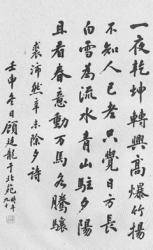 一夜乾坤轉興高爆竹揚
不知人已老只覺日方長
白雪為流水青山駐夕陽
且看春意動萬馬各騰驤
裘沛然辛未除夕詩
壬申冬日顧廷龍于北苑